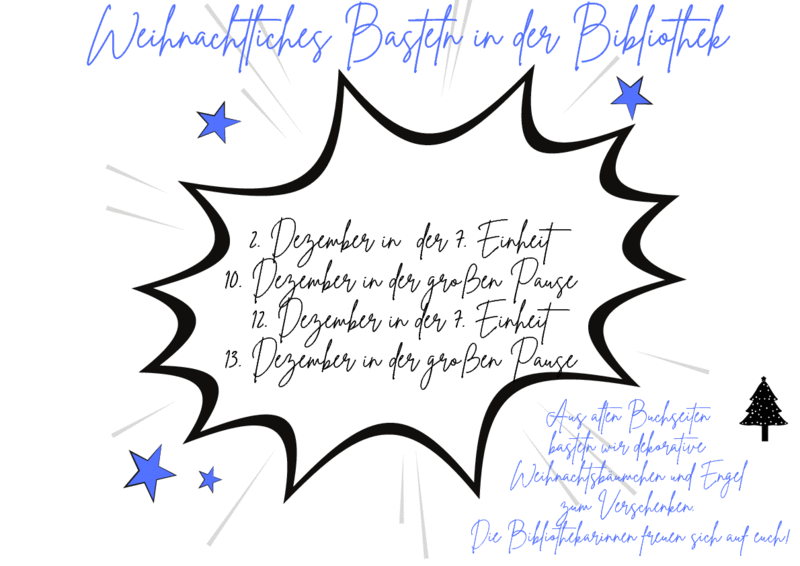 Weihnachtliches Basteln in der Bibliothek
2. Dezember in der 7. Einheit
10. Dezember in der großen Pause
12. Dezember in der 7. Einheit
13. Dezember in der großen Pause
Aus alten Buchseiten
basteln wir dekorative
Weihnachtsbäumchen und Engel
zum Verschenken.
Die Bibliothekarinnen freuen sich auf euch!